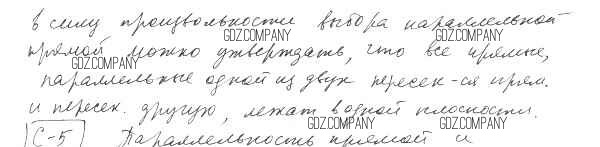 В силу произвольности выбора параллельной
GDZ.COMPANY GDZ.COMPANY
прямой можно утверждать, что все прямые,
GDZ.COMPANY GDZ.COMPANY
параллельные одной из двух пересек-ся прям.
и пересек. другую, лежат в одной плоскости.
GDZ.COMPANY GDZ.COMPANY
С-5 Параллельность прямой и